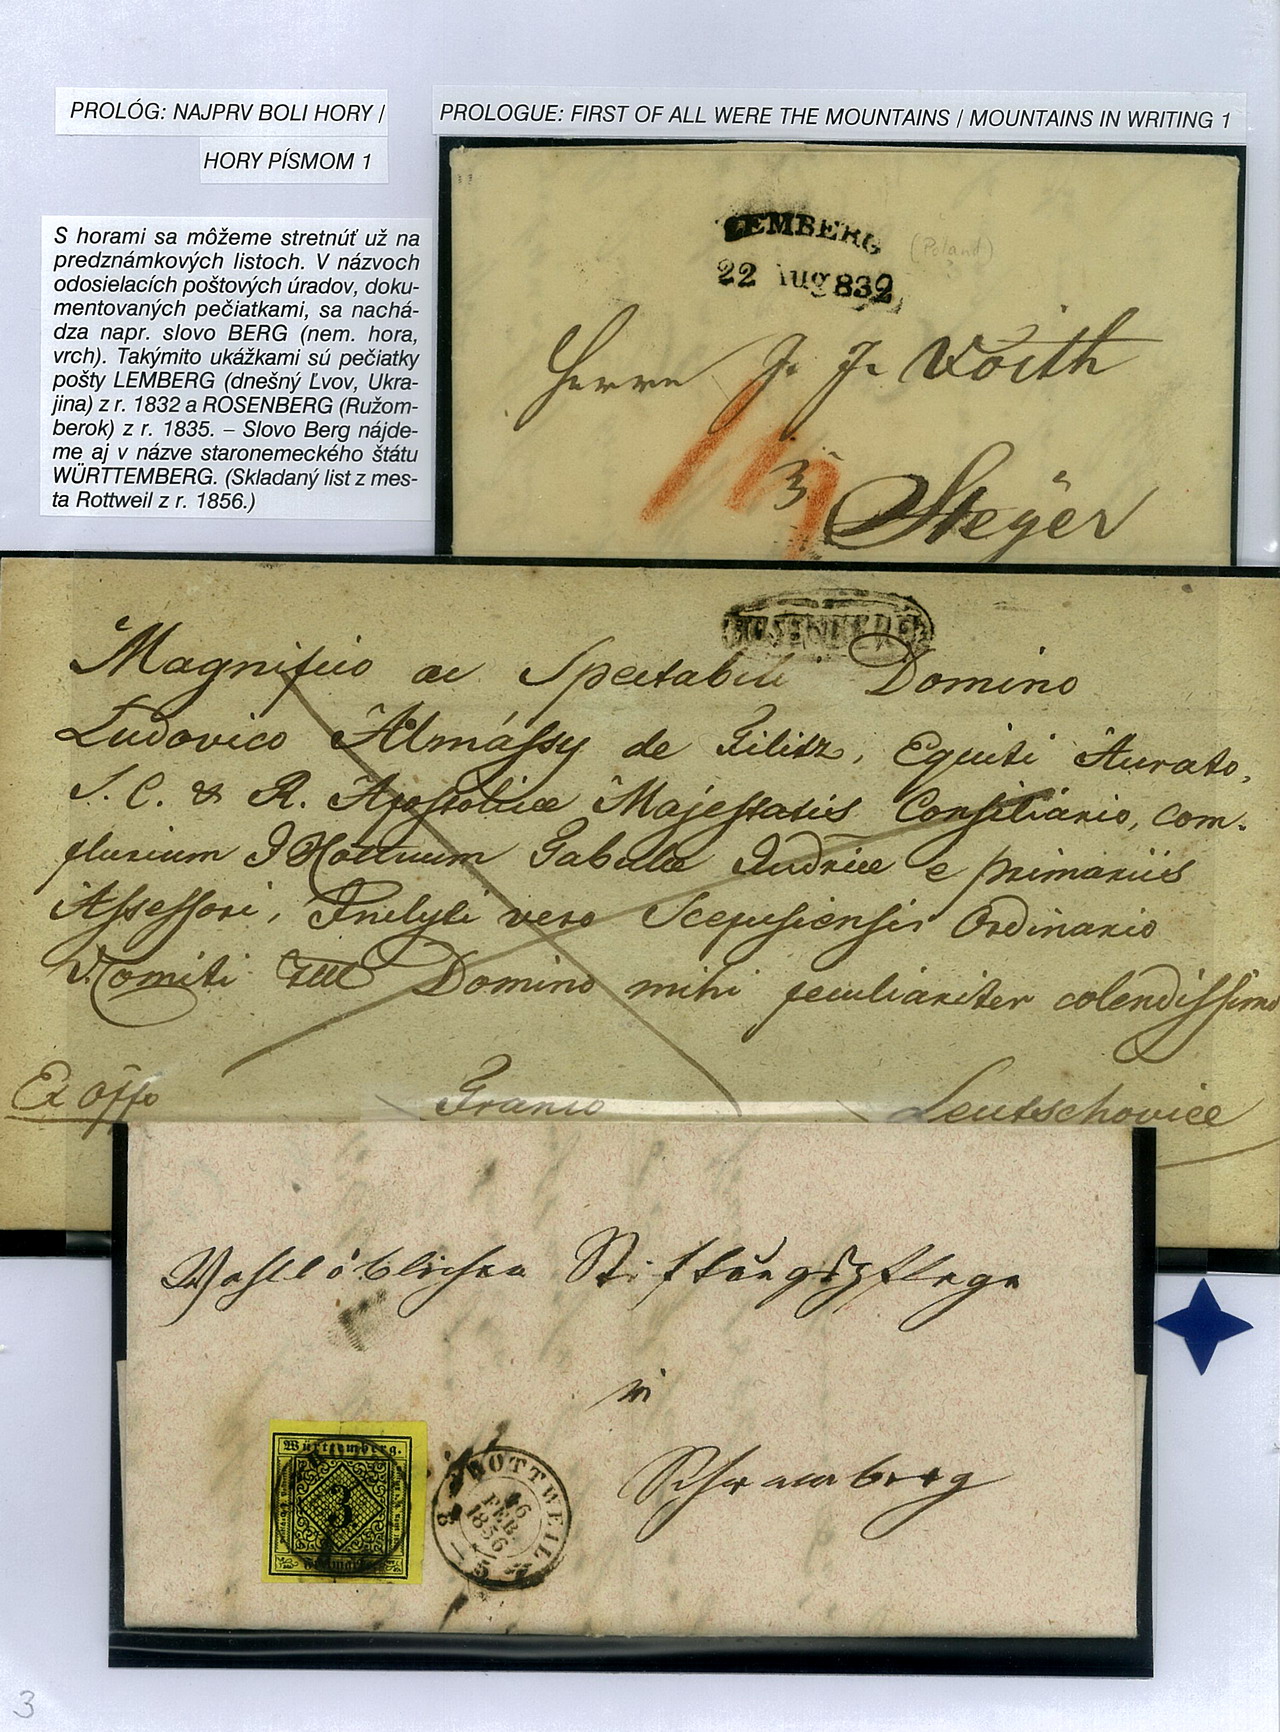 PROLÓG: NAJPRV BOLI HORY /
HORY PÍSMOM 1
PROLOGUE: FIRST OF ALL WERE THE MOUNTAINS / MOUNTAINS IN WRITING 1
S horami sa môžeme stretnúť už na
predznámkových listoch. V názvoch
odosielacích poštových úradov, doku-
mentovaných pečiatkami, sa nachá-
dza napr. slovo BERG (nem. hora,
vrch). Takýmito ukážkami sú pečiatky
pošty LEMBERG (dnešný Ľvov, Ukra-
jina) z r. 1832 a ROSENBERG (Ružom-
berok) z r. 1835. – Slovo Berg nájde-
me aj v názve staronemeckého štátu
WÜRTTEMBERG. (Skladaný list z mes-
ta Rottweil z r. 1856.)
LEMBERG
(Poland)
22 Aug 832
Herrn J. J. Voith
3
Steyer
ROSENBERG
Magnifico ac Spectabili Domino
Ludovico Almássy de Filitz, Equiti Aurato,
S. C. & R. Apostolicae Majestatis Consiliario, Com-
plurium I Tabulae Judriae e primariis
Assessori, Inclyti vero Scepusiensis Ordinario
Comiti Domino mihi peculiariter colendissimo
Ex Offo Franco Leutschoviae
Wohllöblichen Stiftungspflege
in
Schramberg
Württemberg.
3
ROTTWEIL
16
FEB.
1856
3